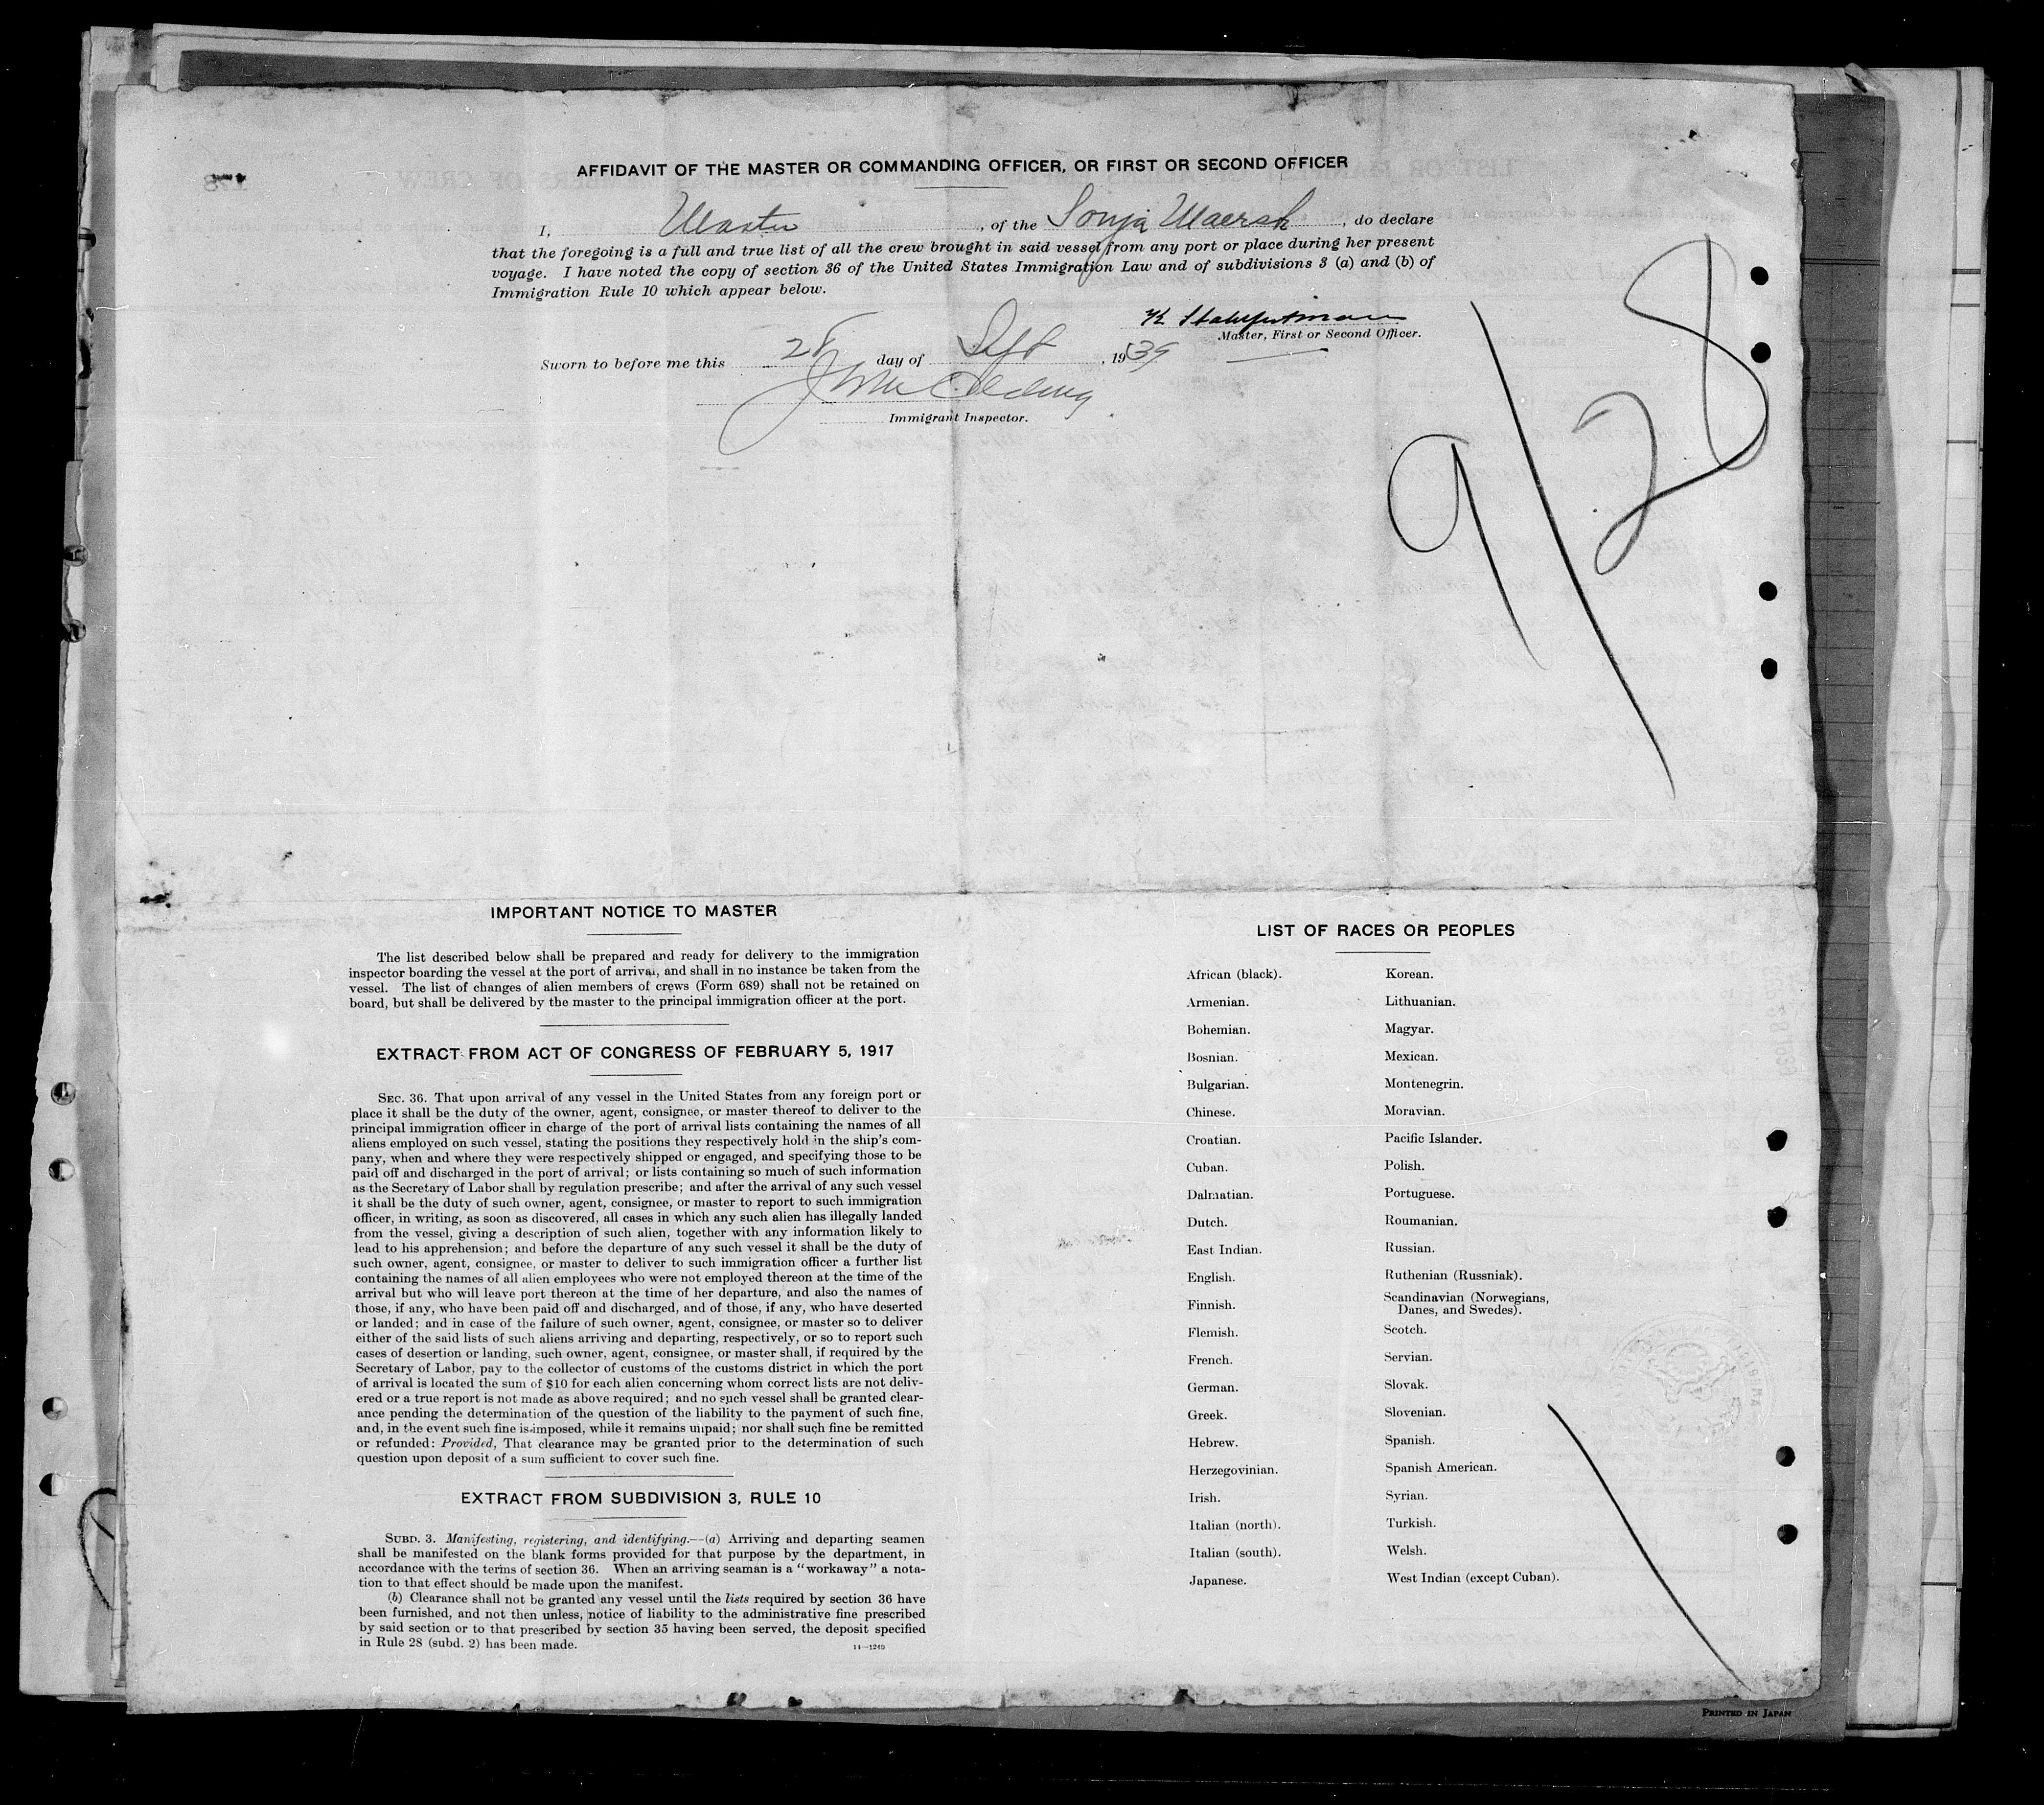 AFFIDAVIT OF THE MASTER OR COMMANDING OFFICER, OR FIRST OR SECOND OFFICER
I, Master, of the Sonja Maersk, do declare
that the foregoing is a full and true list of all the crew brought in said vessel from any port or place during her present
voyage. I have noted the copy of section 36 of the United States Immigration Law and of subdivisions 3 (a) and (b) of
Immigration Rule 10 which appear below.
Master, First or Second Officer.
Sworn to before me this 28 day of Sept, 1939
Immigrant Inspector.
9/28
IMPORTANT NOTICE TO MASTER
The list described below shall be prepared and ready for delivery to the immigration
inspector boarding the vessel at the port of arrival, and shall in no instance be taken from the
vessel. The list of changes of alien members of crews (Form 689) shall not be retained on
board, but shall be delivered by the master to the principal immigration officer at the port.
EXTRACT FROM ACT OF CONGRESS OF FEBRUARY 5, 1917
SEC. 36. That upon arrival of any vessel in the United States from any foreign port or
place it shall be the duty of the owner, agent, consignee, or master thereof to deliver to the
principal immigration officer in charge of the port of arrival lists containing the names of all
aliens employed on such vessel, stating the positions they respectively hold in the ship's com-
pany, when and where they were respectively shipped or engaged, and specifying those to be
paid off and discharged in the port of arrival; or lists containing so much of such information
as the Secretary of Labor shall by regulation prescribe; and after the arrival of any such vessel
it shall be the duty of such owner, agent, consignee, or master to report to such immigration
officer, in writing, as soon as discovered, all cases in which any such alien has illegally landed
from the vessel, giving a description of such alien, together with any information likely to
lead to his apprehension; and before the departure of any such vessel it shall be the duty of
such owner, agent, consignee, or master to deliver to such immigration officer a further list
containing the names of all alien employees who were not employed thereon at the time of the
arrival but who will leave port thereon at the time of her departure, and also the names of
those, if any, who have been paid off and discharged, and of those, if any, who have deserted
or landed; and in case of the failure of such owner, agent, consignee, or master so to deliver
either of the said lists of such aliens arriving and departing, respectively, or so to report such
cases of desertion or landing, such owner, agent, consignee, or master shall, if required by the
Secretary of Labor, pay to the collector of customs of the customs district in which the port
of arrival is located the sum of $10 for each alien concerning whom correct lists are not deliv-
ered or a true report is not made as above required; and no such vessel shall be granted clear-
ance pending the determination of the question of the liability to the payment of such fine,
and, in the event such fine is imposed, while it remains unpaid; nor shall such fine be remitted
or refunded: Provided, That clearance may be granted prior to the determination of such
question upon deposit of a sum sufficient to cover such fine.
EXTRACT FROM SUBDIVISION 3, RULE 10
SUBD. 3. Manifesting, registering, and identifying.—(a) Arriving and departing seamen
shall be manifested on the blank forms provided for that purpose by the department, in
accordance with the terms of section 36. When an arriving seaman is a "workaway" a nota-
tion to that effect should be made upon the manifest.
(b) Clearance shall not be granted any vessel until the lists required by section 36 have
been furnished, and not then unless, notice of liability to the administrative fine prescribed
by said section or to that prescribed by section 35 having been served, the deposit specified
in Rule 28 (subd. 2) has been made.
14—1240
LIST OF RACES OR PEOPLES
African (black).
Armenian.
Bohemian.
Bosnian.
Bulgarian.
Chinese.
Croatian.
Cuban.
Dalmatian.
Dutch.
East Indian.
English.
Finnish.
Flemish.
French.
German.
Greek.
Hebrew.
Herzegovinian.
Irish.
Italian (north).
Italian (south).
Japanese.
Korean.
Lithuanian.
Magyar.
Mexican.
Montenegrin.
Moravian.
Pacific Islander.
Polish.
Portuguese.
Roumanian.
Russian.
Ruthenian (Russniak).
Scandinavian (Norwegians,
Danes, and Swedes).
Scotch.
Servian.
Slovak.
Slovenian.
Spanish.
Spanish American.
Syrian.
Turkish.
Welsh.
West Indian (except Cuban).
PRINTED IN JAPAN